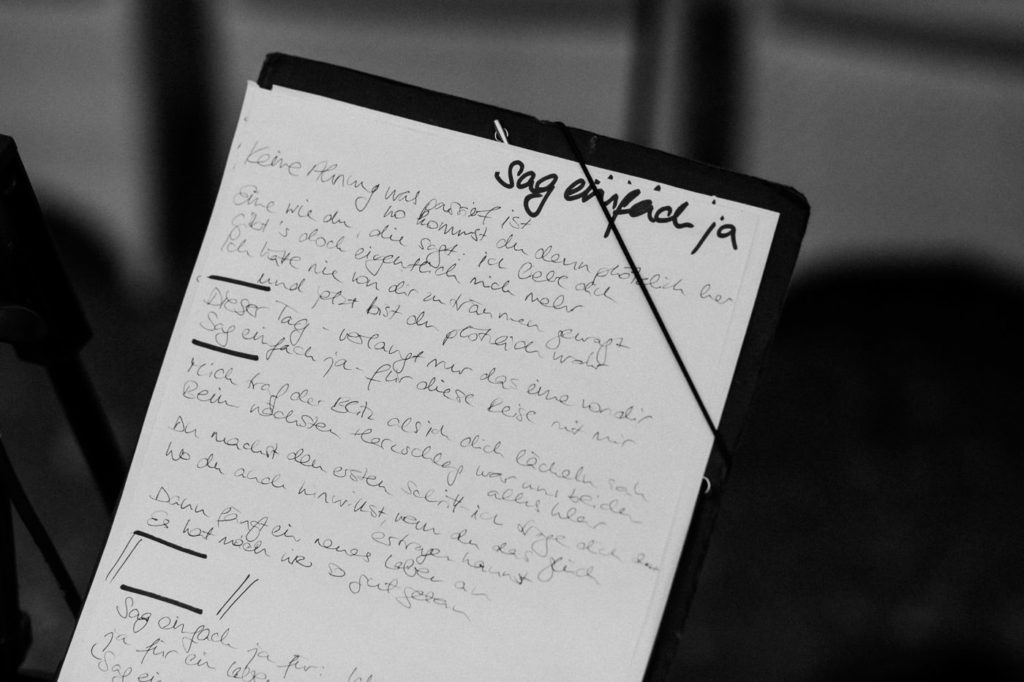 sag einfach ja
Keine Ahnung was passiert ist
wo kommst du denn plötzlich her
Eine wie du, die sagt: ich liebe dich
Gibt's doch eigentlich nicht mehr
Ich hätte nie von dir zu träumen gewagt
und jetzt bist du plötzlich wahr
Dieser Tag - verlangt nur das eine von dir
Sag einfach ja - für diese Reise mit mir
Mich traf der Blitz als ich dich lächeln sah
Beim nächsten Herzschlag war uns beiden
alles klar
Du machst den ersten Schritt ich trage dich dann
Wo du auch hinwillst, wenn du das Glück
ertragen kannst
Dann fängt ein neues Leben an
Es hat noch wer gut
Sag einfach ja für:
ja für ein Leben
(Sag ein